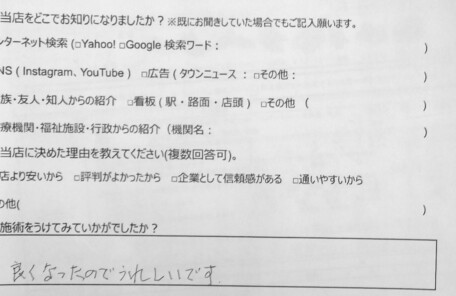 当店をどこでお知りになりましたか？※既にお聞きしていた場合でもご記入願います。
ンターネット検索 (□Yahoo! □Google 検索ワード： )
NS ( Instagram、YouTube ) □広告 ( タウンニュース ： □その他： )
族・友人・知人からの紹介 □看板 ( 駅・路面・店頭 ) □その他 ( )
療機関・福祉施設・行政からの紹介 （機関名： )
当店に決めた理由を教えてください(複数回答可)。
店より安いから □評判がよかったから □企業として信頼感がある □通いやすいから
の他( )
施術をうけてみていかがでしたか？
良くなったのでうれしいです。